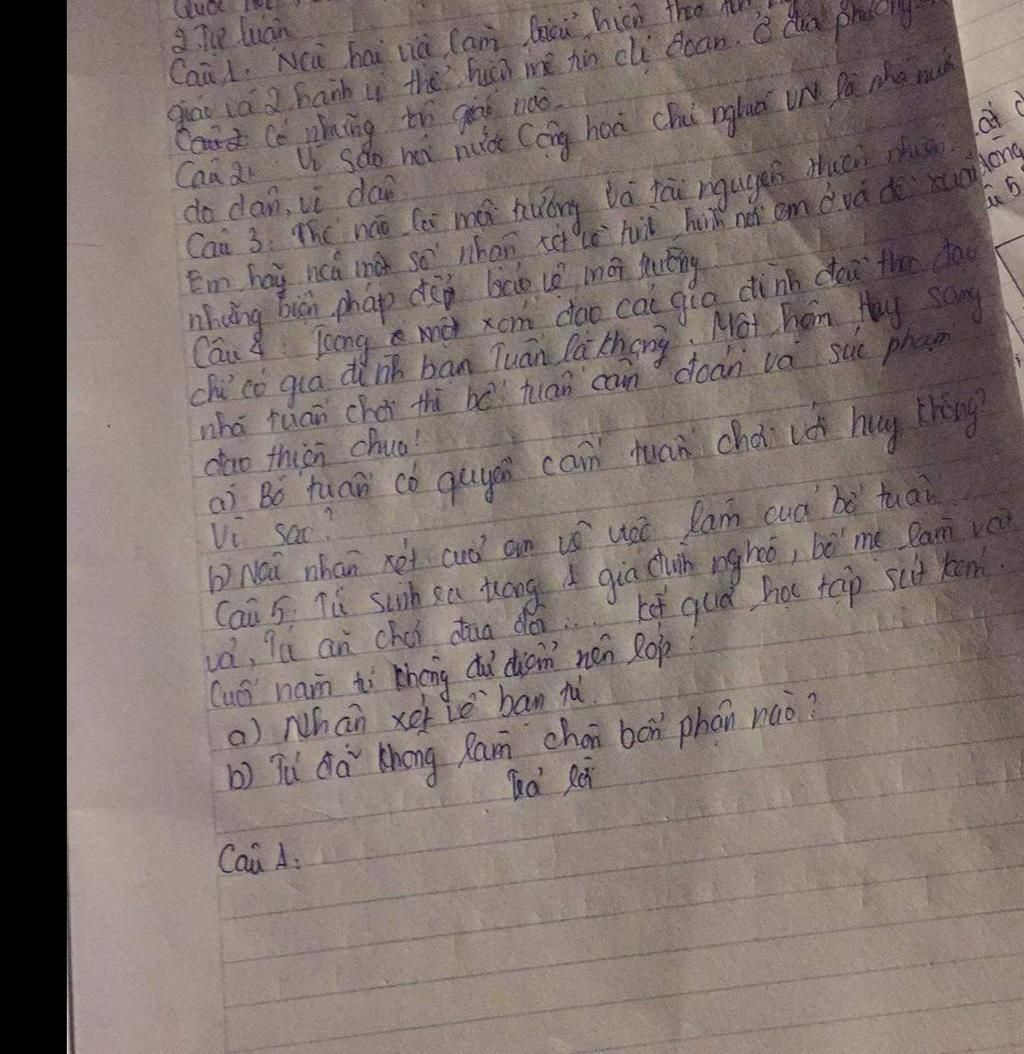 Quốc
2. Tự luận
Câu 1. Nêu hai việc làm biểu hiện theo tôn
giáo và 2 hành vi thể hiện mê tín dị đoan. Ở địa phương
có những tôn giáo nào.
Câu 2. Vì sao nói nước Cộng hoà chủ nghĩa VN là nhà nước
do dân, vì dân
Câu 3: Thế nào là môi trường và tài nguyên thiên nhiên.
Em hãy nêu một số nhận xét về tình hình nơi em ở và đề xuất
những biện pháp để bảo vệ môi trường
Câu 4: Trong một xóm đạo các gia đình đều theo đạo
chỉ có gia đình bạn Tuấn là không. Một hôm Huy sang
nhà tuấn chơi thì bố tuấn cấm đoán và xúc phạm
đạo thiên chúa!
a) Bố tuấn có quyền cấm tuấn chơi với huy không?
Vì sao?
b) Nêu nhận xét của em về việc làm của bố tuấn
Câu 5: Tú sinh ra trong 1 gia đình nghèo, bố mẹ làm vất
vả, Tú ăn chơi đua đòi... kết quả học tập sút kém.
Cuối năm tú không đủ điểm nên lớp
a) Nhận xét về bạn tú.
b) Tú đã không làm chọn bổn phận nào?
Trả lời
Câu 1: